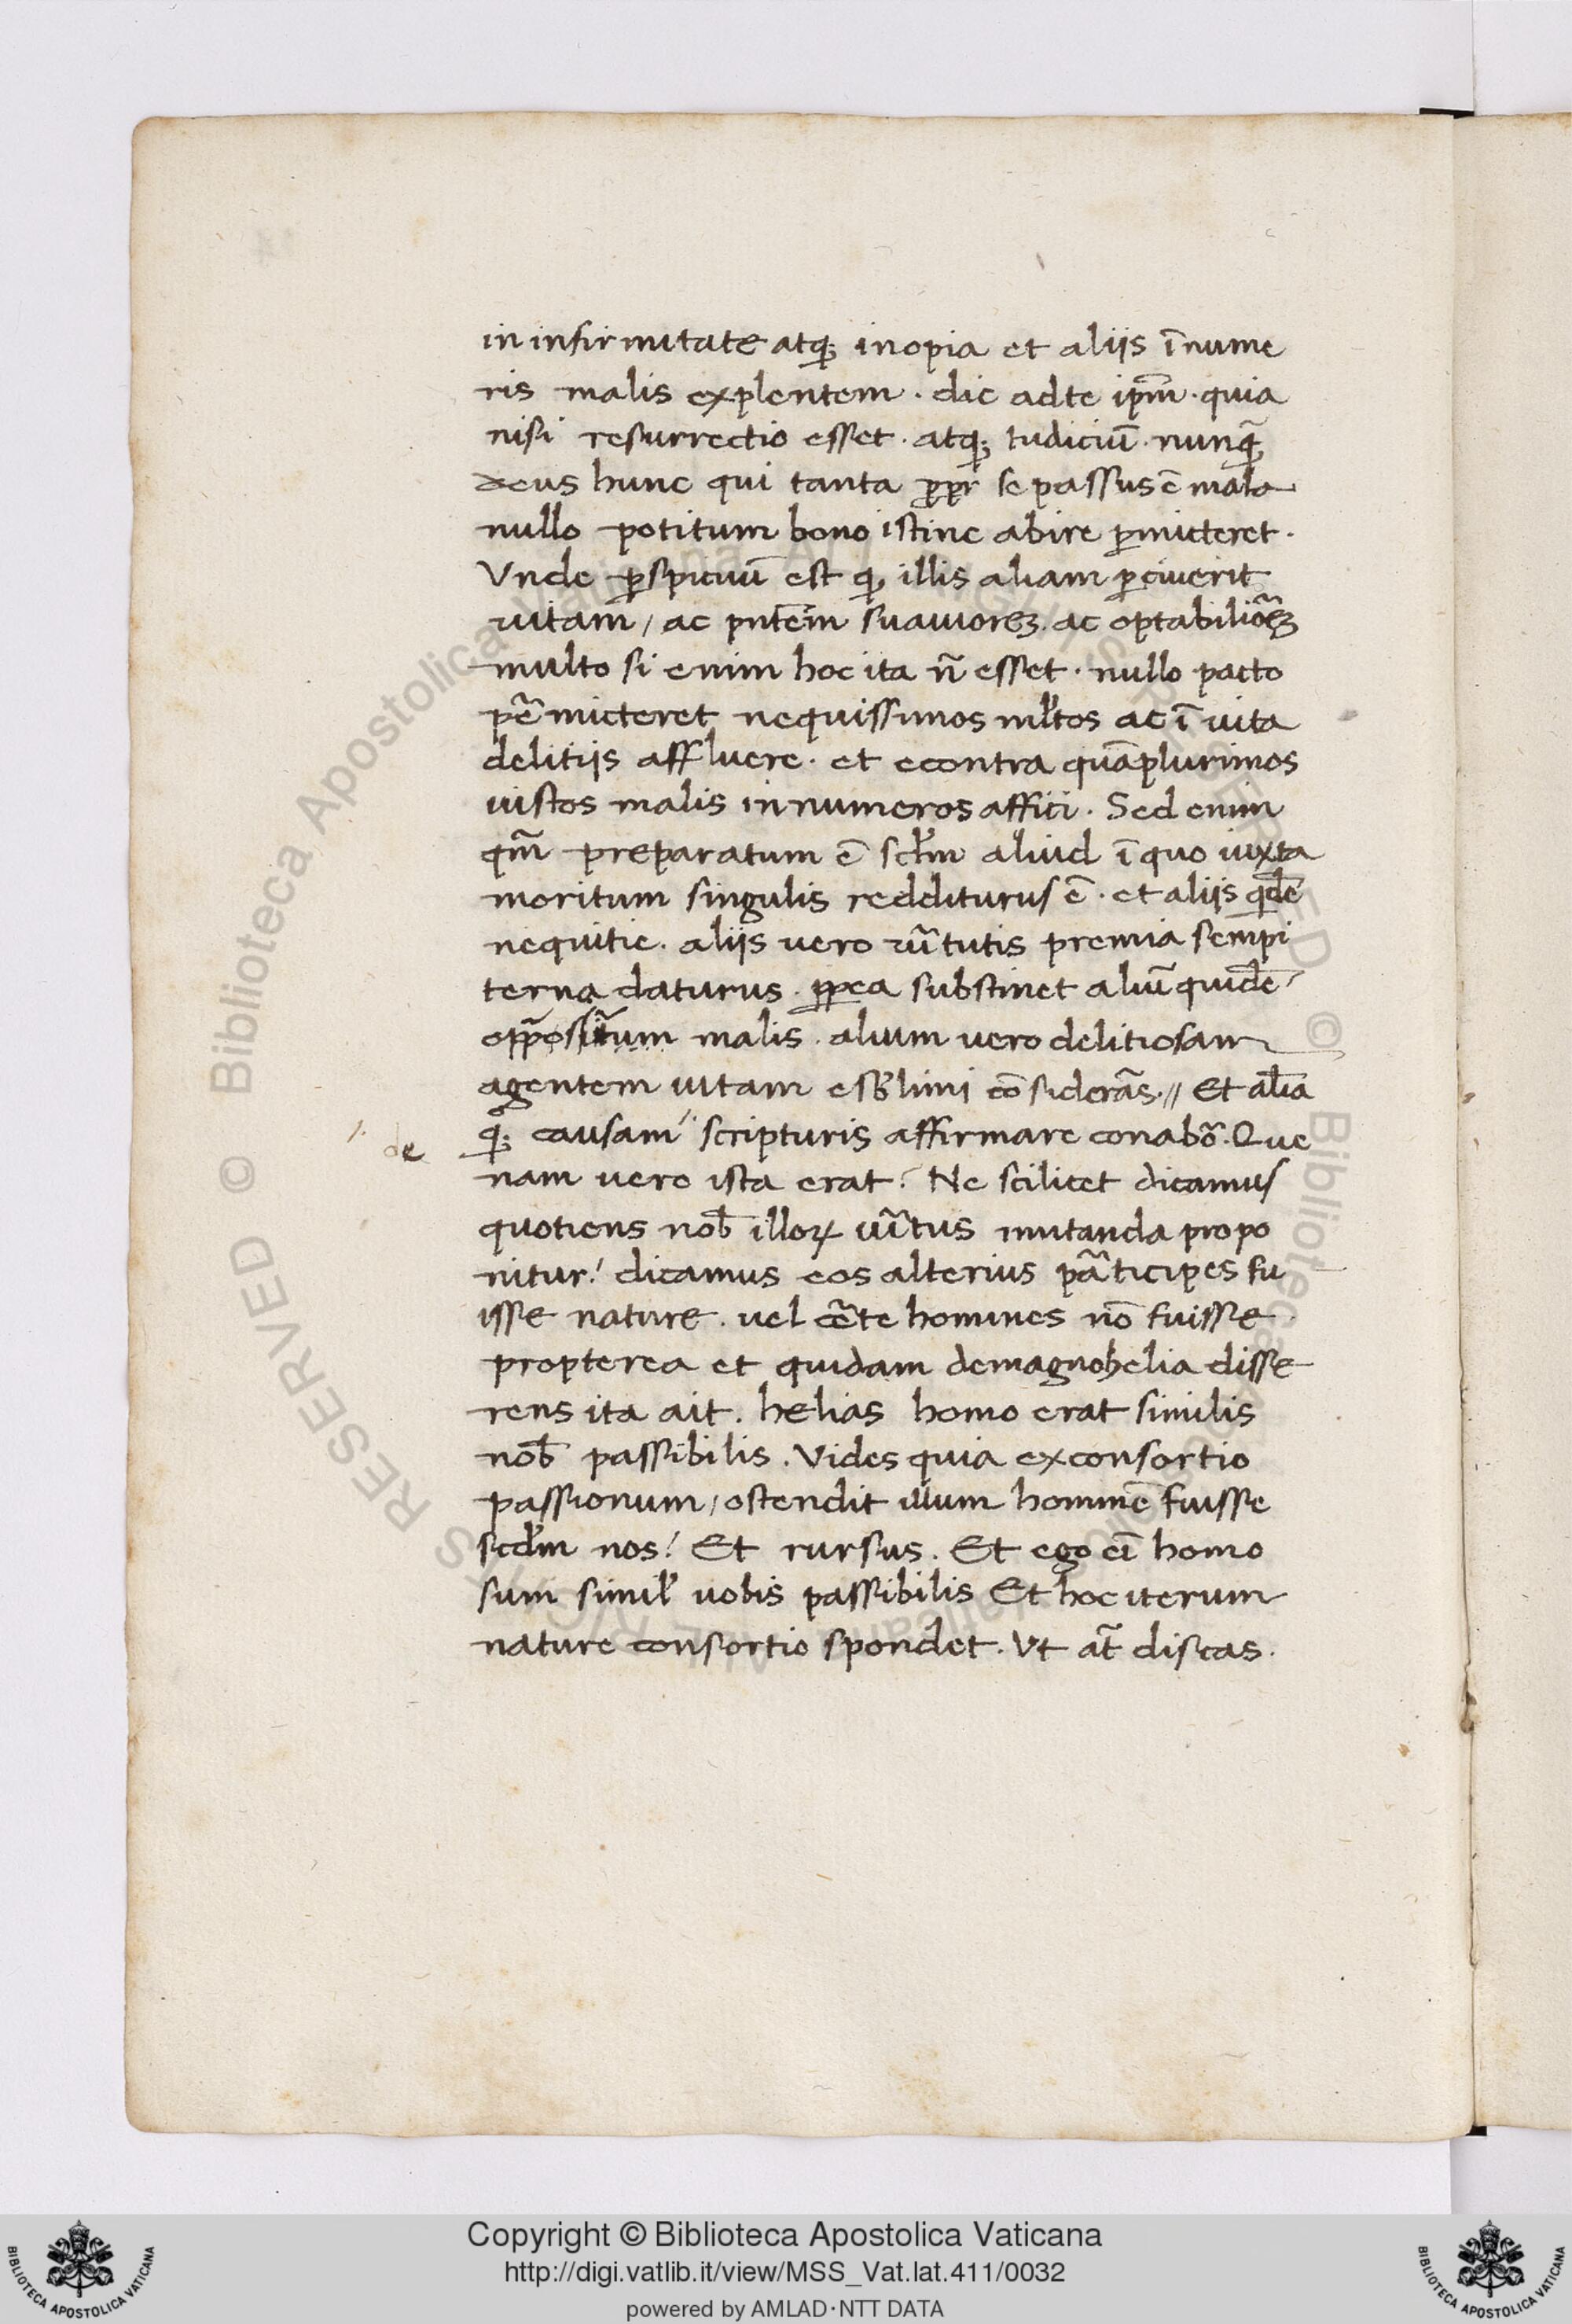 in infirmitate atq; inopia et aliis īnume
ris malis explentem · dic ad te ip̄m · quia
nisi resurrectio esset · atq; iudiciū · nunq̄
deus hunc qui tanta ꝓpr̄ se passus ē mala
nullo potitum bono istinc abire ꝑmicteret ·
Vnde ꝑspicuū est ꝙ illis aliam ꝑciuerit
uitam / ac pn̄tem̄ suauiorēꝫ · ac optabiliorēꝫ
multo si enim hoc ita n̄ esset · nullo pacto
pēmicteret nequissimos ml̄tos ac ī uita
delitiis affluere · et econtra quāplurimos
iustos malis innumeros affici · Sed enim
qm̄ preparatum ē scl̄m aliud ī quo iuxta
moritum singulis redditurus ē · et aliis qdē
nequitie · aliis vero uītutis premia sempi
terna daturus · ꝓpea substinet aliū quidē
opp̄ositum malis · alium vero delitiosam
agentem uitam esb̄limi cōsiderās · // Et al̄ia
q; causam scripturis affirmare conabō · Que
de
nam vero ista erat? Ne scilicet dicamus
quotiens nob̄ illoꝝ uīrtus imitanda propo
nitur! dicamus eos alterius pāticipes fu
isse nature · vel cēte homines nō fuisse
propterea et quidam de magno helia disse
rens ita ait · helias homo erat similis
nob̄ passibilis · Vides quia ex consortio
passionum / ostendit illum hominē fuisse
scd̄m nos! Et rursus · Et ego eī homo
sum simil̄ uobis passibilis Et hoc iterum
nature consortio spondet · Vt āt discas ·
Copyright © Biblioteca Apostolica Vaticana
http://digi.vatlib.it/view/MSS_Vat.lat.411/0032
powered by AMLAD·NTT DATA